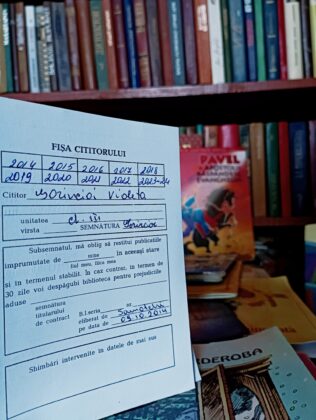 FIȘA CITITORULUI
2014 2015 2016 2017 2018
2019 2020 2021 2022 2023-24
Cititor Violeta
unitatea cl. III
vîrsta SEMNĂTURA
Subsemnatul, mă oblig să restitui publicațiile
împrumutate de mine în aceeași stare
fiul meu, fiica mea
și în termenul stabilit. În caz contrar, în termen de
30 zile voi despăgubi biblioteca pentru prejudiciile
aduse
semnătura
titularului B.I.seria nr.
de contract eliberat de
pe data de 09.10.2014
Shimbări intervenite în datele de mai sus
PAVEL
APOSTOLUL
DEROBA